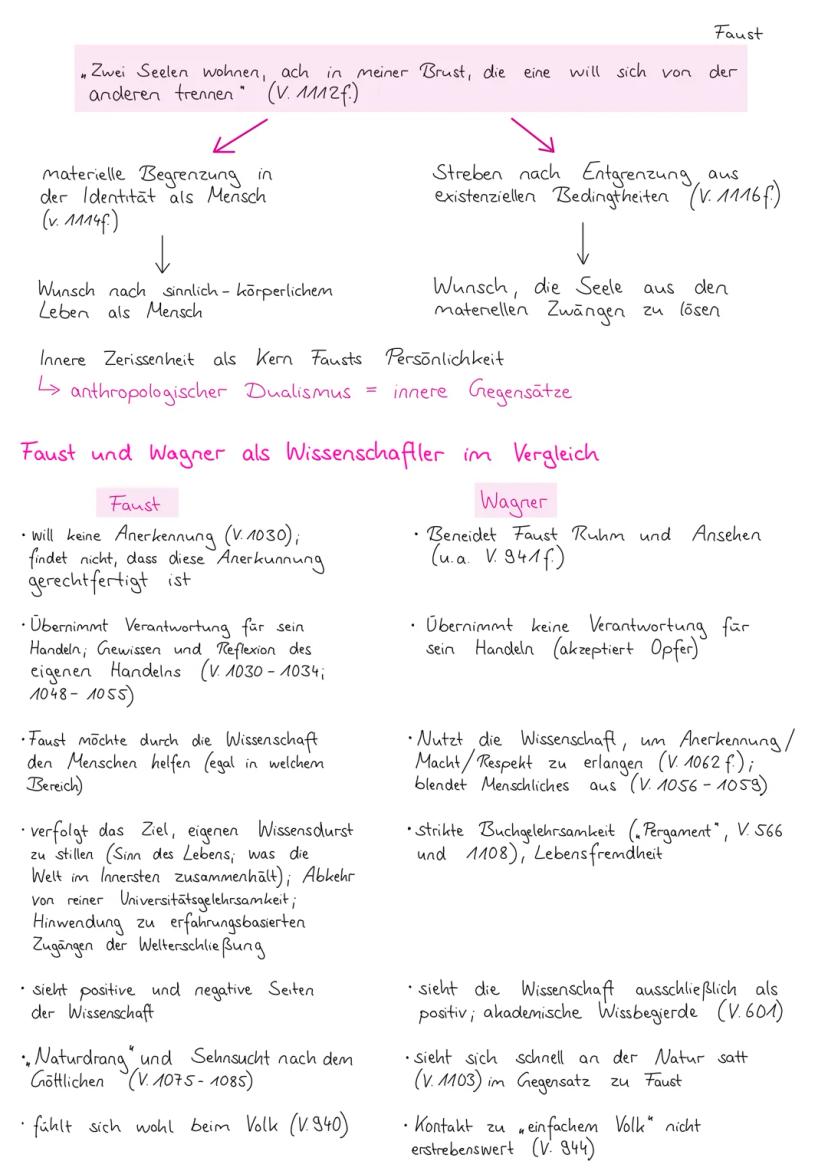 Faust
„Zwei Seelen wohnen, ach in meiner Brust, die eine will sich von der
anderen trennen" (V. 1112f.)
materielle Begrenzung in
der Identität als Mensch
(v. 1114f.)
Wunsch nach sinnlich-körperlichem
Leben als Mensch
Streben nach Entgrenzung aus
existenziellen Bedingtheiten (V. 1116f)
Wunsch, die Seele aus den
materiellen Zwängen zu lösen
Innere Zerissenheit als Kern Fausts Persönlichkeit
↳ anthropologischer Dualismus = innere Gegensätze
Faust und Wagner als Wissenschaftler im Vergleich
Faust
• will keine Anerkennung (V. 1030);
findet nicht, dass diese Anerkunnung
gerechtfertigt ist
• Übernimmt Verantwortung für sein
Handeln; Gewissen und Reflexion des
eigenen Handelns (V. 1030 - 1034;
1048 - 1055)
• Faust möchte durch die Wissenschaft
den Menschen helfen (egal in welchem
Bereich)
• verfolgt das Ziel, eigenen Wissensdurst
zu stillen (Sinn des Lebens; was die
Welt im Innersten zusammenhält); Abkehr
von reiner Universitätsgelehrsamkeit;
Hinwendung zu erfahrungsbasierten
Zugängen der Welterschließung
• sieht positive und negative Seiten
der Wissenschaft
• „Naturdrang" und Sehnsucht nach dem
Göttlichen (V. 1075 - 1085)
• fühlt sich wohl beim Volk (V. 940)
Wagner
• Beneidet Faust Ruhm und Ansehen
(u.a. V. 941f.)
• Übernimmt keine Verantwortung für
sein Handeln (akzeptiert Opfer)
• Nutzt die Wissenschaft, um Anerkennung/
Macht/Respekt zu erlangen (V. 1062 f.);
blendet Menschliches aus (V. 1056 - 1059)
• strikte Buchgelehrsamkeit („Pergament", V. 566
und 1108), Lebensfremdheit
• sieht die Wissenschaft ausschließlich als
positiv; akademische Wissbegierde (V. 601)
• sieht sich schnell an der Natur satt
(V. 1103) im Gegensatz zu Faust
• Kontakt zu „einfachem Volk" nicht
erstrebenswert (V. 944)